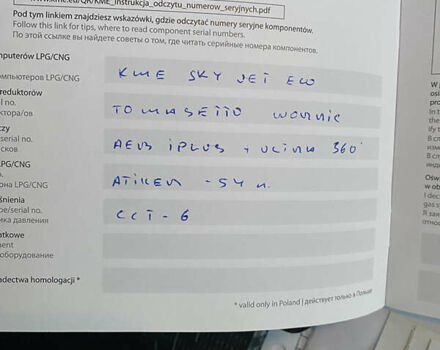 www.kme.eu/QR/KME_instrukcja_odczytu_numerow_seryjnych.pdf
Pod tym linkiem znajdziesz wskazówki, gdzie odczytać numery seryjne komponentów.
Follow this link for tips, where to read component serial numbers.
По этой ссылке вы найдете советы о том, где читать серийные номера компонентов.
mputerów LPG/CNG
мпьютеров LPG/CNG
KME SKY JET ECO
reduktorów
l no.
ктора/ов
TOMASETTO
czy
serial no.
сков
AEB iPLUS + ULTRA 360°
LPG/CNG
o.
она LPG/CNG
ATIKER - 54 л.
śnienia
pe/serial no.
ика давления
CCT - 6
atkowe
ment
оборудование
adectwa homologacji *
* valid only in Poland | действует только в Польше